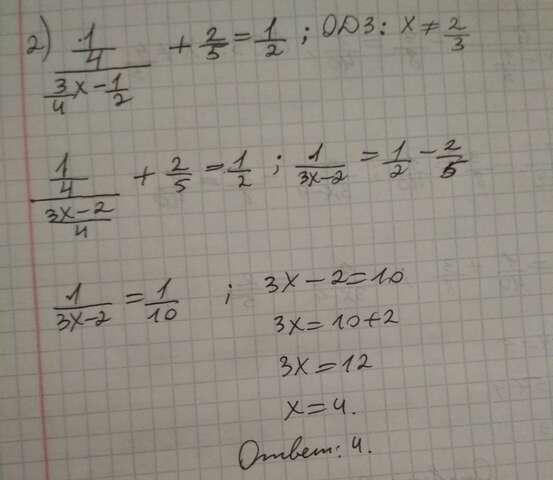 2) (1/4)/(3/4 x - 1/2) + 2/5 = 1/2 ; ОДЗ: x ≠ 2/3
(1/4)/((3x-2)/4) + 2/5 = 1/2 ; 1/(3x-2) = 1/2 - 2/5
1/(3x-2) = 1/10 ; 3x - 2 = 10
3x = 10 + 2
3x = 12
x = 4.
Ответ: 4.